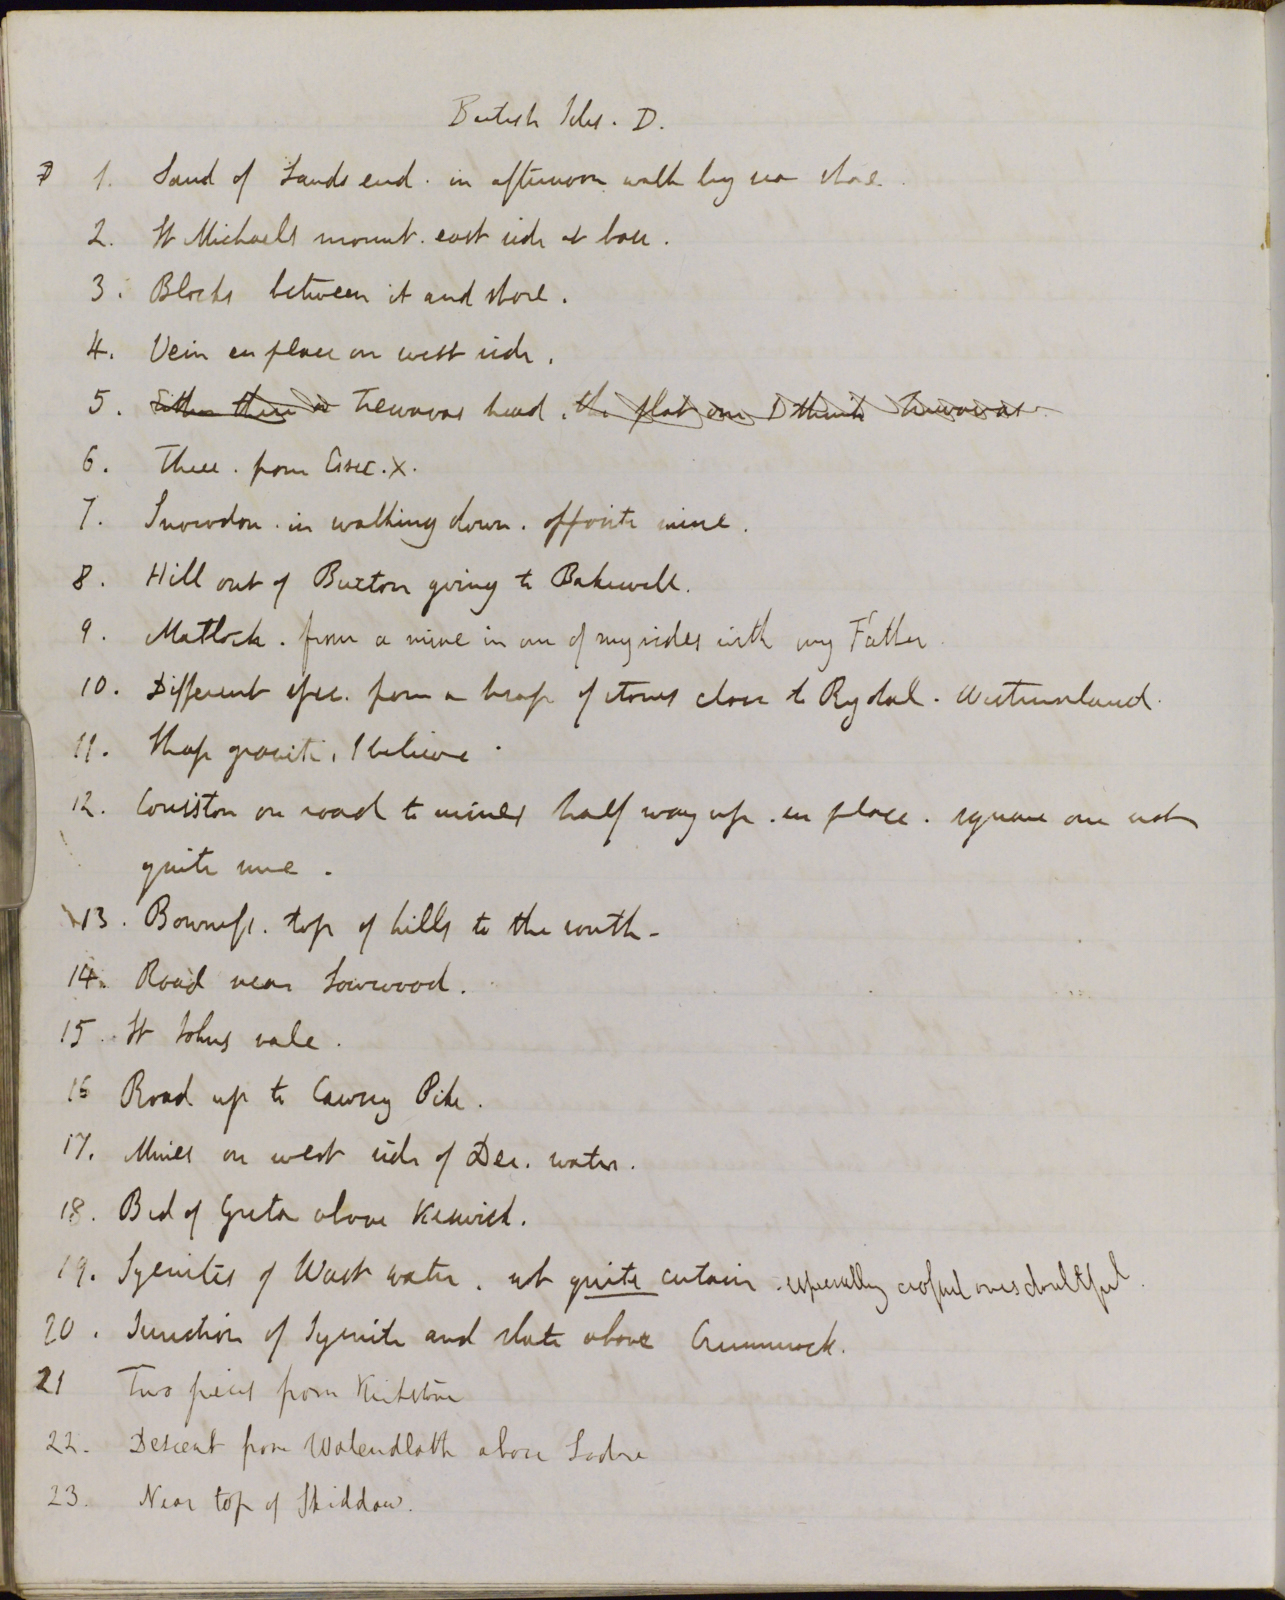 British Isles. D.
D 1. Sand of Lands end. in afternoon walk by sea shore.
2. St Michaels mount. east side at base.
3. Blocks between it and shore.
4. Vein in place on west side.
5. Either there or Trewavas head. the flat one I think Trewavas.
6. Three. from X.
7. Snowdon. in walking down. opposite mine.
8. Hill out of Buxton going to Bakewell.
9. Matlock. from a mine in one of my rides with my Father.
10. Different spec. from a heap of stones close to Rydal. Westmorland.
11. Shap granite, I believe.
12. Coniston on road to mines half way up. in place. square one not
quite sure.
13. Bowness. top of hills to the south-
14. Road near Lowwood.
15. St Johns vale.
16 Road up to Cawsey Pike.
17. Mines on west side of Der. water.
18. Bed of Greta above Keswick.
19. Syenites of Wast water. not quite certain. especially ones doubtful.
20. Junction of Syenite and slate above Crummock.
21 Two pieces from
22. Descent from Watendlath above Lodore
23. Near top of Skiddaw.